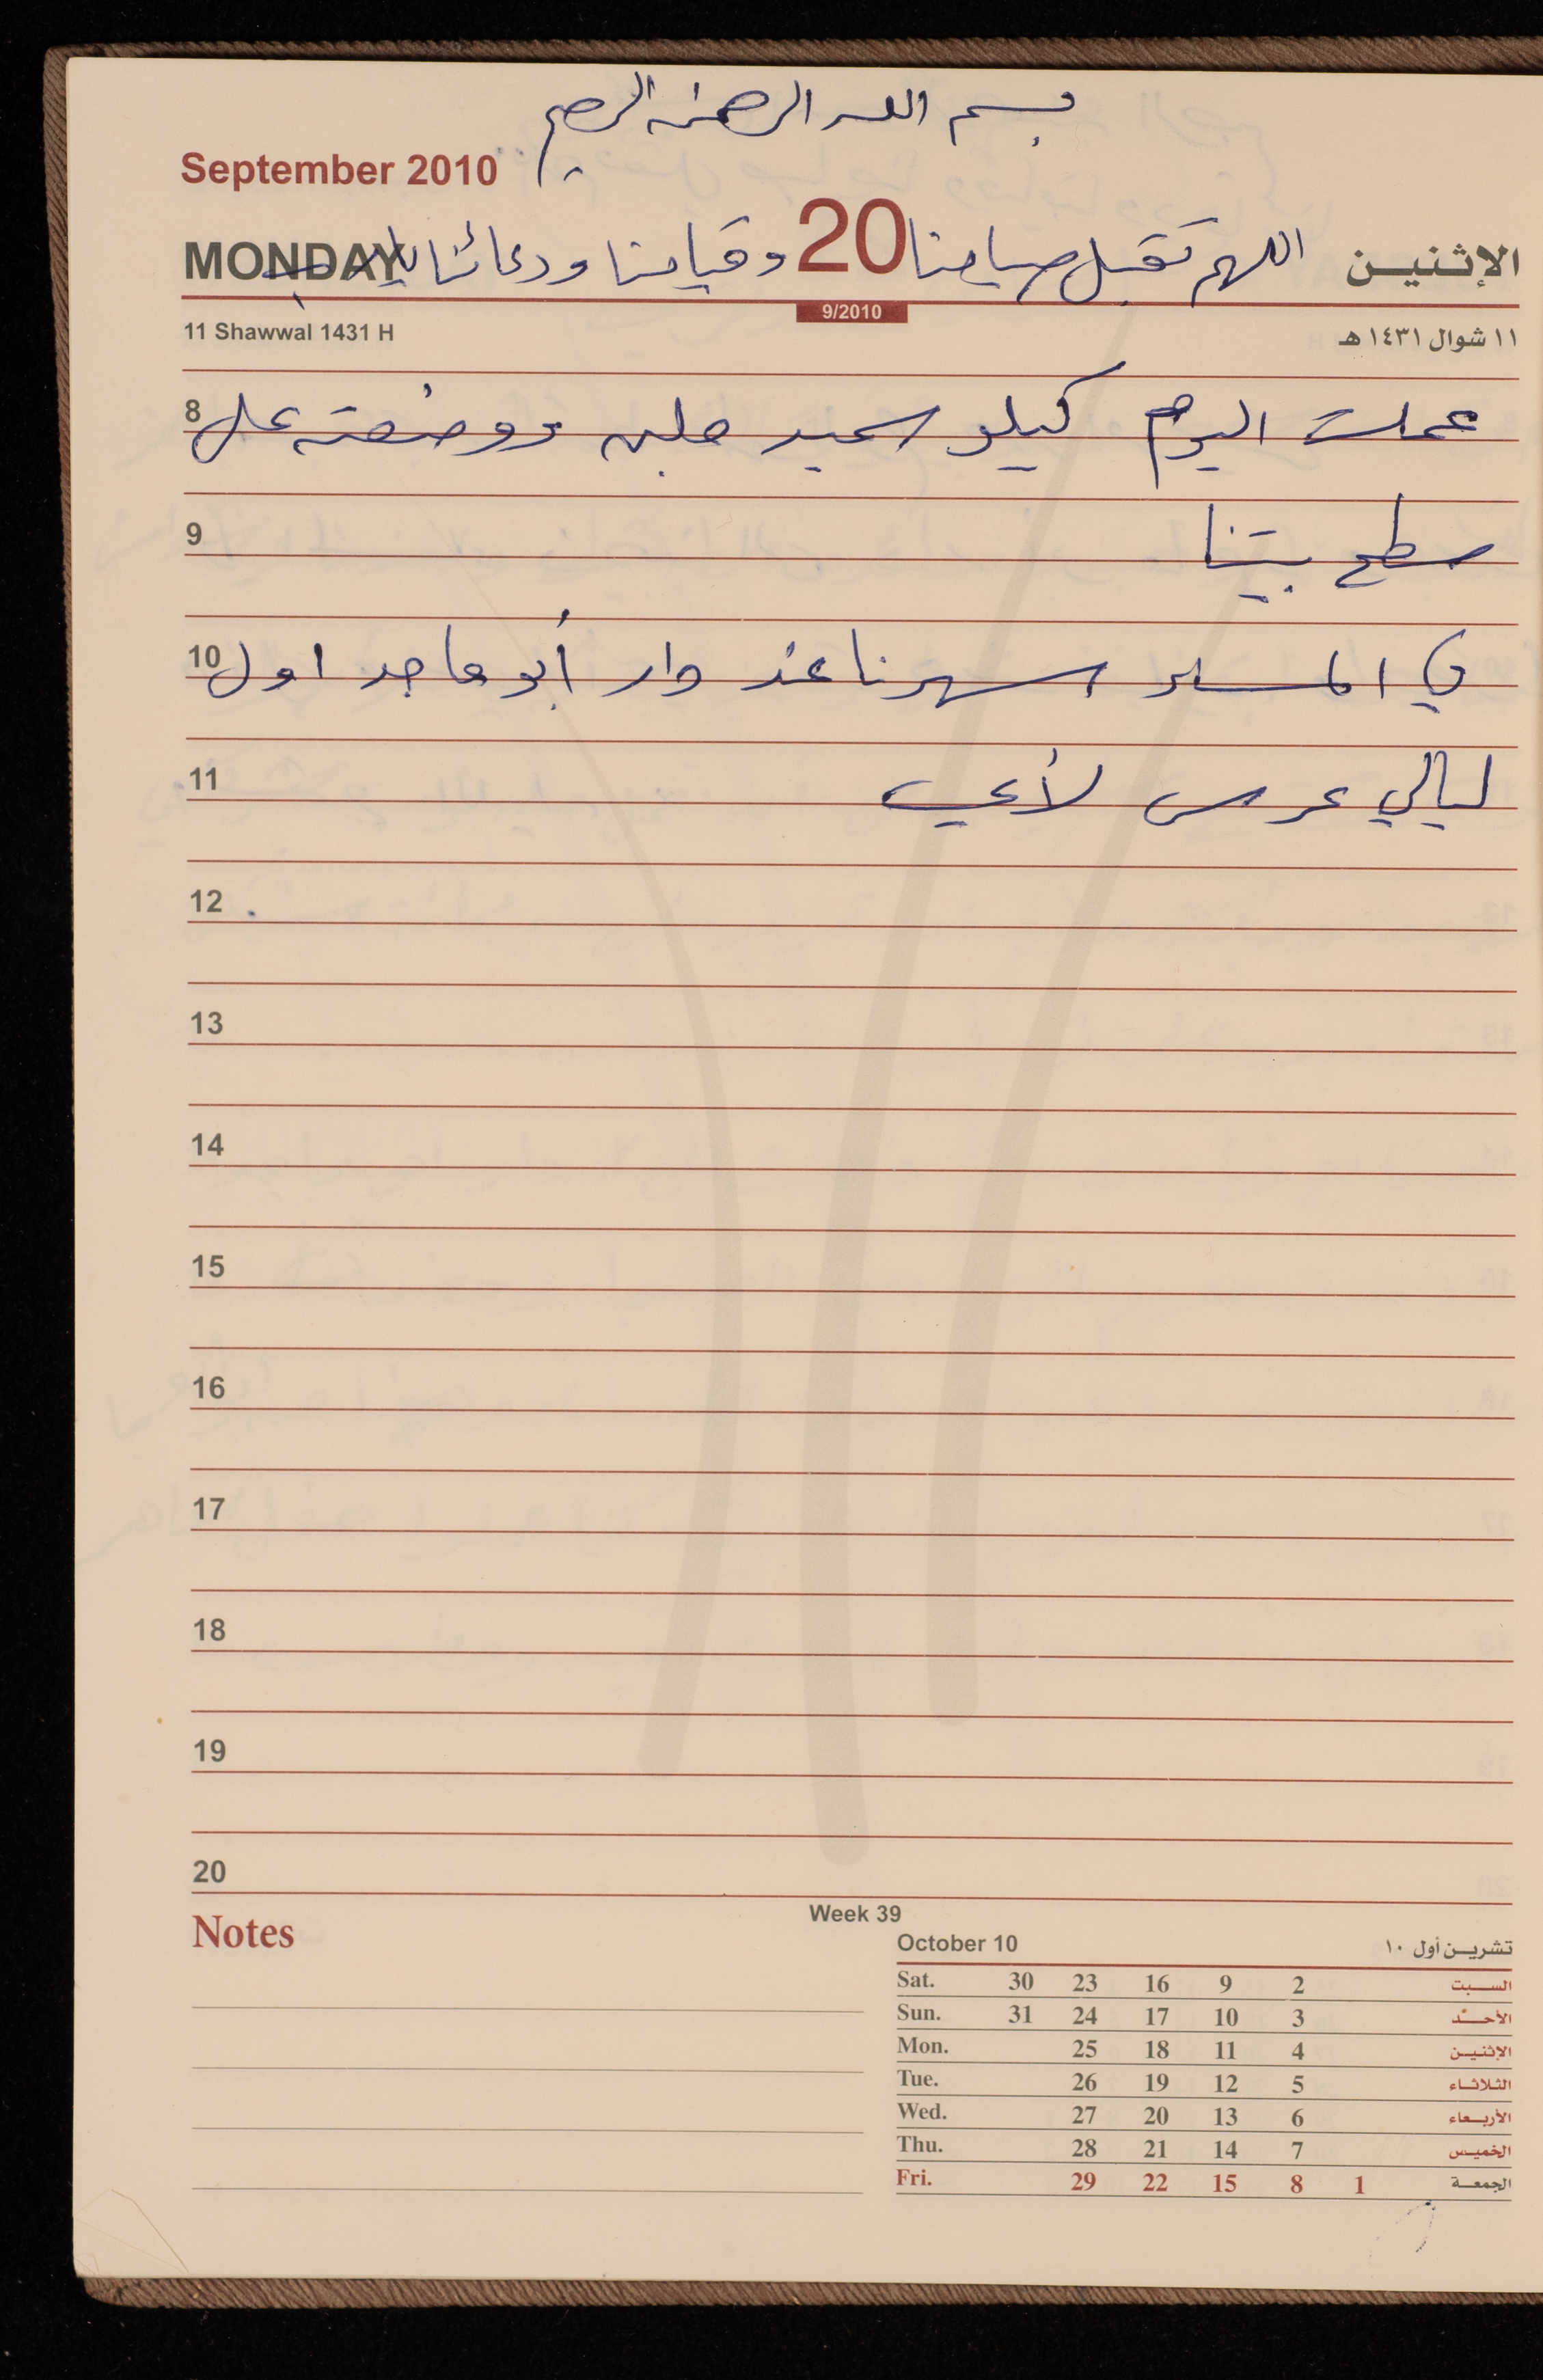 بسم الله الرحمن الرحيم
September 2010
MONDAY 20 الإثنين
اللهم تقبل صيامنا وقيامنا ودعائنا يارب
9/2010
11 Shawwal 1431 H ١١ شوال ١٤٣١ هـ
8 عملت اليوم كيلو سميد حلبه ووضعته على
9 سطح بيتنا
10 في المساء سهرنا عند دار أبو ماجد اول
11 ليالي عرس لأعي
12
13
14
15
16
17
18
19
20
Notes
Week 39
October 10 تشرين أول ١٠
Sat. 30 23 16 9 2 السبت
Sun. 31 24 17 10 3 الأحد
Mon. 25 18 11 4 الإثنين
Tue. 26 19 12 5 الثلاثاء
Wed. 27 20 13 6 الأربعاء
Thu. 28 21 14 7 الخميس
Fri. 29 22 15 8 1 الجمعة